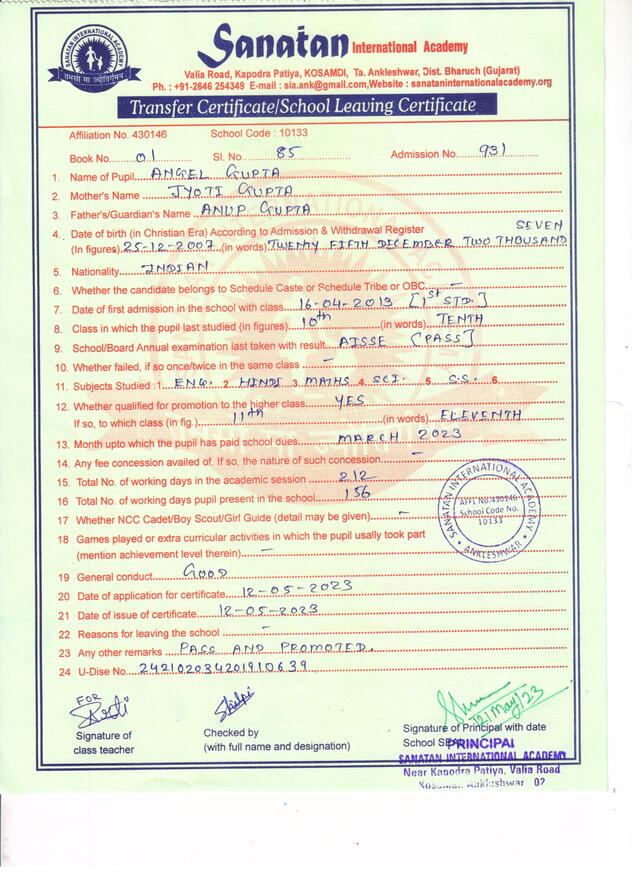 SANATAN INTERNATIONAL ACADEMY
तमसो मा ज्योतिर्गमय
Sanatan International Academy
Valia Road, Kapodra Patiya, KOSAMDI, Ta. Ankleshwar, Dist. Bharuch (Gujarat)
Ph. : +91-2646 254349 E-mail : sia.ank@gmail.com,Website : sanataninternationalacademy.org
Transfer Certificate/School Leaving Certificate
Affiliation No. 430146 School Code : 10133
Book No. 01 Sl. No. 85 Admission No. 931
1. Name of Pupil ANGEL GUPTA
2. Mother's Name JYOTI GUPTA
3. Father's/Guardian's Name ANUP GUPTA
4. Date of birth (in Christian Era) According to Admission & Withdrawal Register SEVEN
(In figures) 25-12-2007 (in words) TWENTY FIFTH DECEMBER TWO THOUSAND
5. Nationality INDIAN
6. Whether the candidate belongs to Schedule Caste or Schedule Tribe or OBC. –
7. Date of first admission in the school with class 16-04-2013 [1st STD.]
8. Class in which the pupil last studied (in figures) 10th (in words) TENTH
9. School/Board Annual examination last taken with result AISSE [PASS]
10. Whether failed, if so once/twice in the same class –
11. Subjects Studied : 1. ENG. 2. HINDI 3. MATHS 4. SCI. 5. S.S. 6.
12. Whether qualified for promotion to the higher class YES
If so, to which class (in fig.) 11th (in words) ELEVENTH
13. Month upto which the pupil has paid school dues MARCH 2023
14. Any fee concession availed of. If so, the nature of such concession –
15. Total No. of working days in the academic session 212
16 Total No. of working days pupil present in the school 156
17 Whether NCC Cadet/Boy Scout/Girl Guide (detail may be given) –
18 Games played or extra curricular activities in which the pupil usally took part
(mention achievement level therein) –
SANATAN INTERNATIONAL ACADEMY
AFFI. No.430146
School Code No.
10133
ANKLESHWAR
19 General conduct GOOD
20 Date of application for certificate 12-05-2023
21 Date of issue of certificate 12-05-2023
22 Reasons for leaving the school –
23 Any other remarks PASS AND PROMOTED.
24 U-Dise No. 242102034201910639
FOR
12/May/23
Signature of
class teacher
Checked by
(with full name and designation)
Signature of Principal with date
School SEAL
PRINCIPAL
SANATAN INTERNATIONAL ACADEMY
Near Kapodra Patiya, Valia Road
Ankleshwar 02